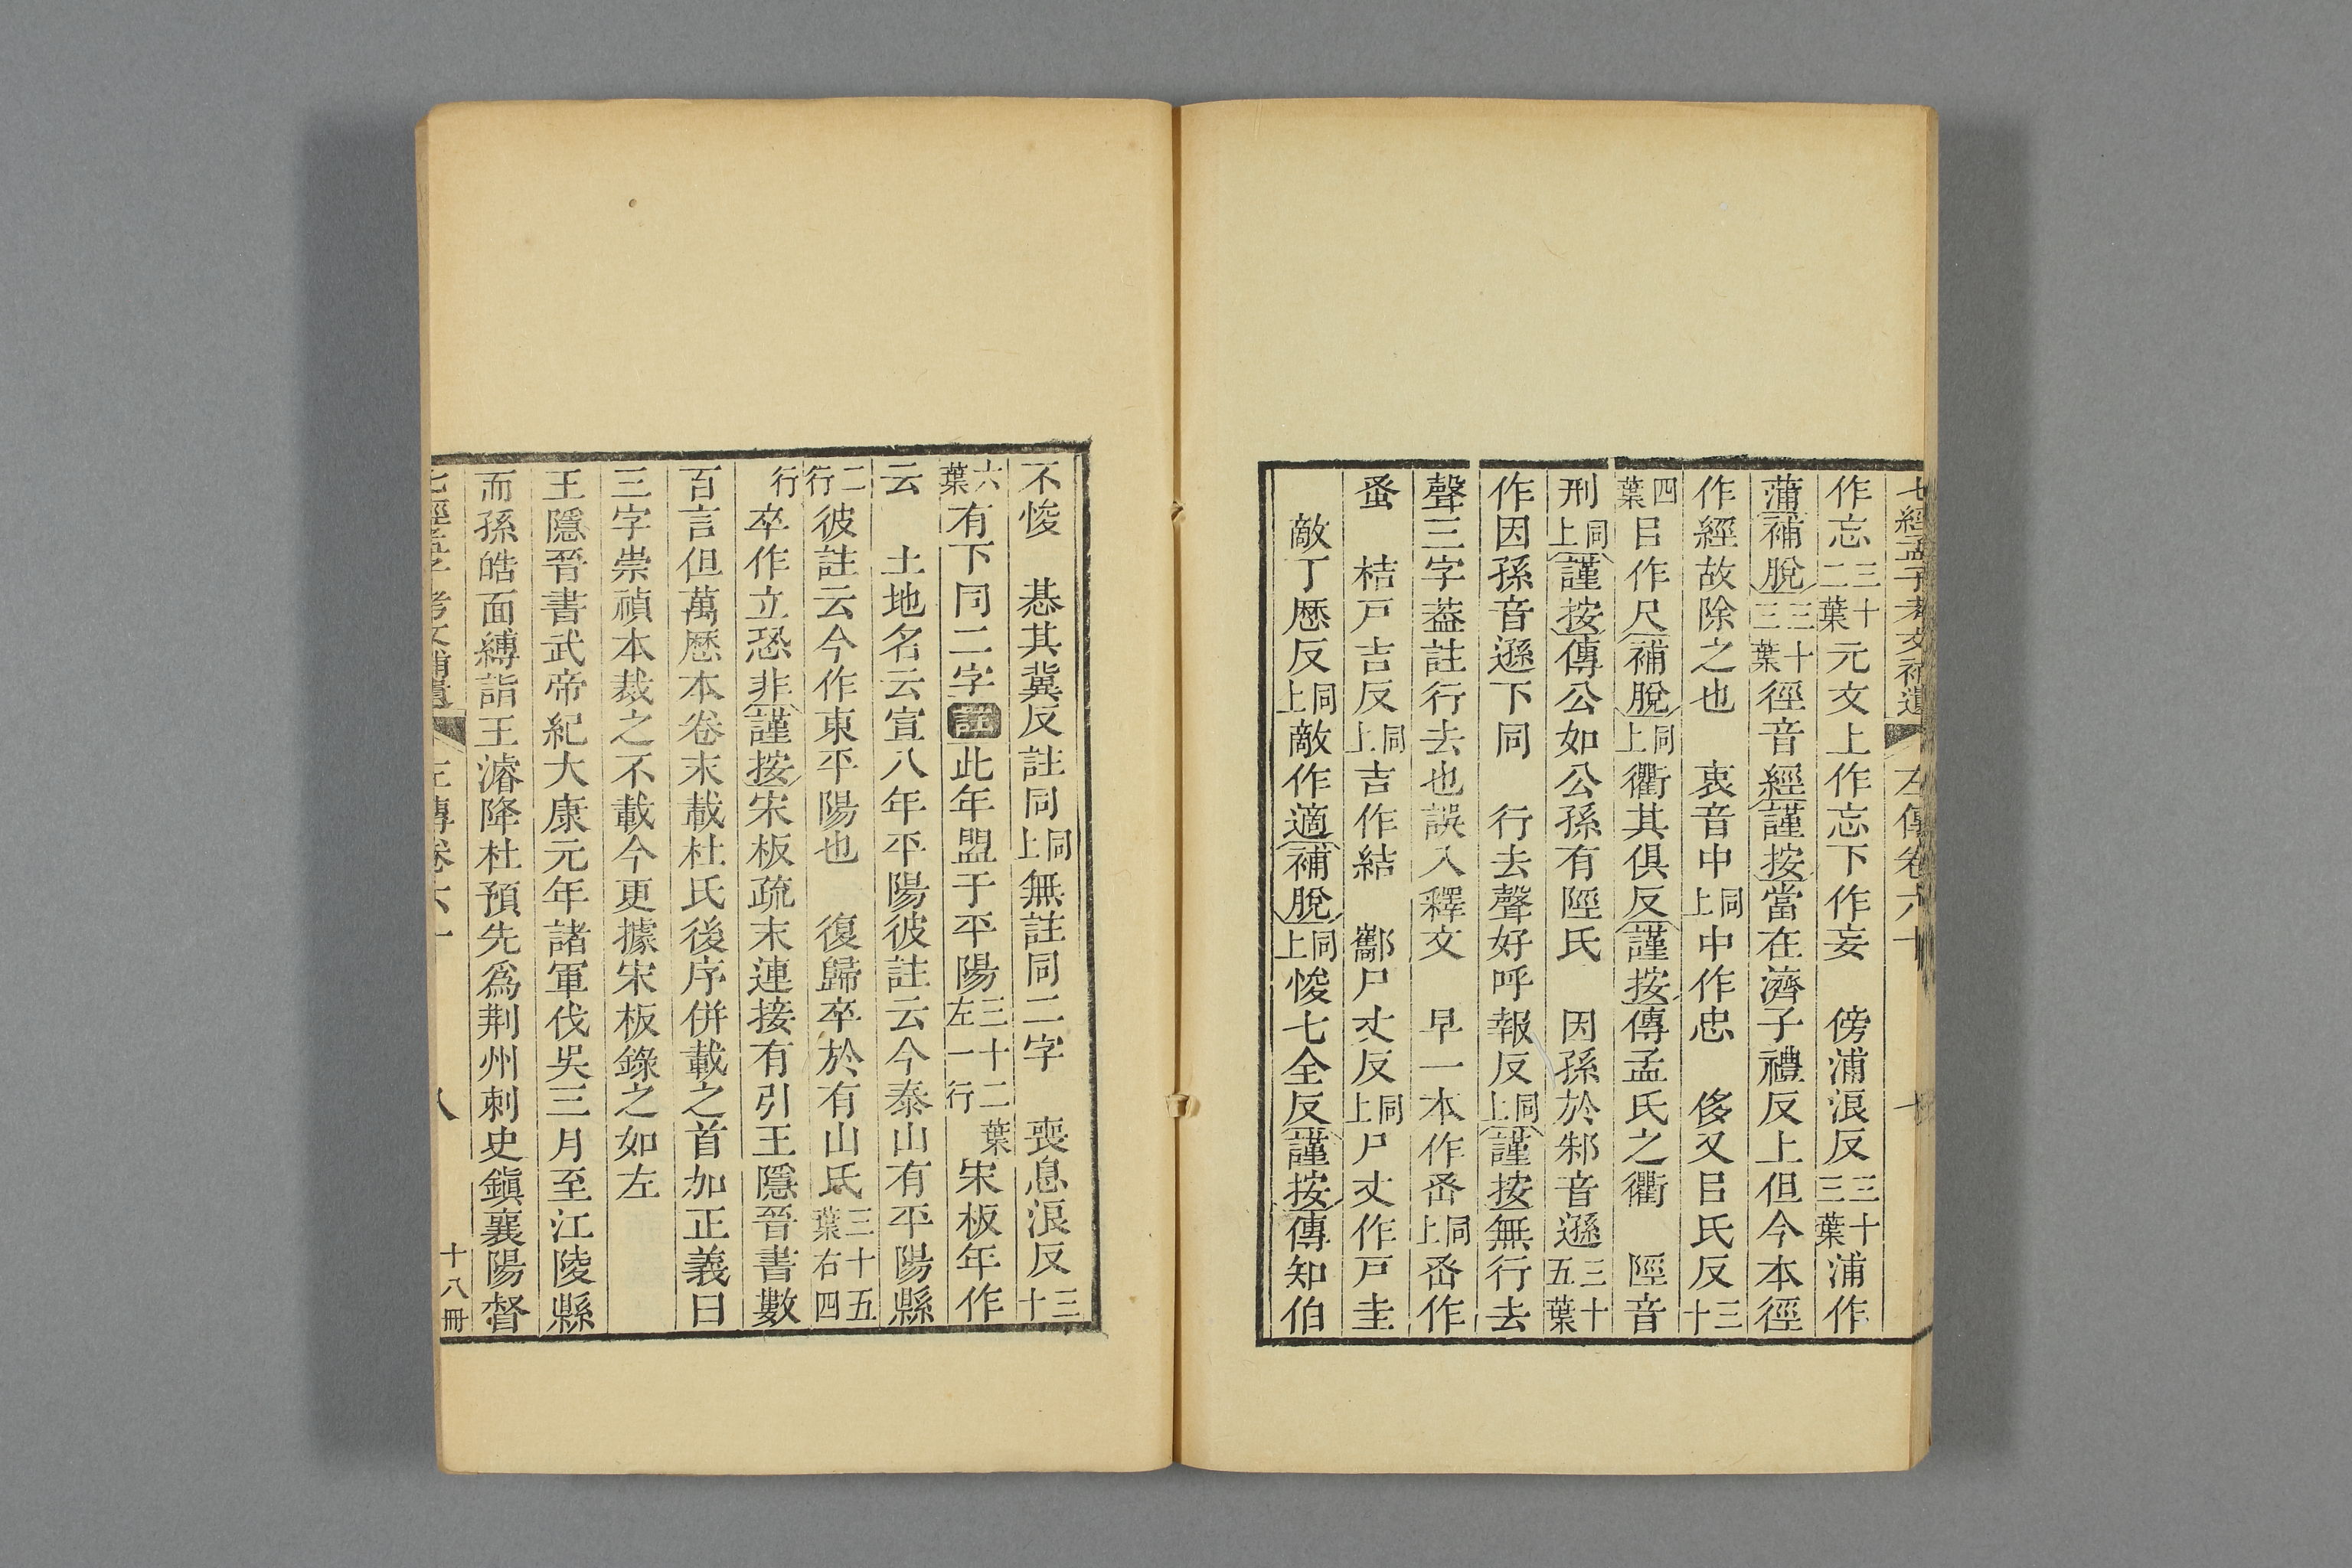 七經孟子考文補遺 左傳卷六十
作忘三十二葉元文上作忘下作妄 傍浦浪反三十三葉浦作
蒲補脫三十三葉徑音經謹按當在濟子禮反上但今本徑
作經故除之也 衷音中同上中作忠 侈又昌氏反三十
四葉昌作尺補脫同上衢其俱反謹按傳孟氏之衢 陘音
刑同上謹按傳公如公孫有陘氏 因孫於邾音遜三十五葉
作因孫音遜下同 行去聲好呼報反同上謹按無行去
聲三字葢註行去也誤入釋文 早一本作蚤同上蚤作
蚤 桔戸吉反同上吉作結 酅尸丈反同上尸丈作戸圭
敵丁歷反同上敵作適補脫同上悛七全反謹按傳知伯
不悛 惎其冀反註同同上無註同二字 喪息浪反三十
六葉有下同二字註此年盟于平陽三十二葉左一行宋板年作
云 土地名云宣八年平陽彼註云今泰山有平陽縣
二行彼註云今作東平陽也 復歸卒於有山氏三十五葉右四
行卒作立恐非謹按宋板疏末連接有引王隱晉書數
百言但萬歷本卷末載杜氏後序併載之首加正義曰
三字崇禎本裁之不載今更據宋板錄之如左
王隱晉書武帝紀大康元年諸軍伐吳三月至江陵縣
而孫皓面縛詣王濬降杜預先爲荆州刺史鎮襄陽督
七經孟子考文補遺 左傳卷六十 八 十八冊